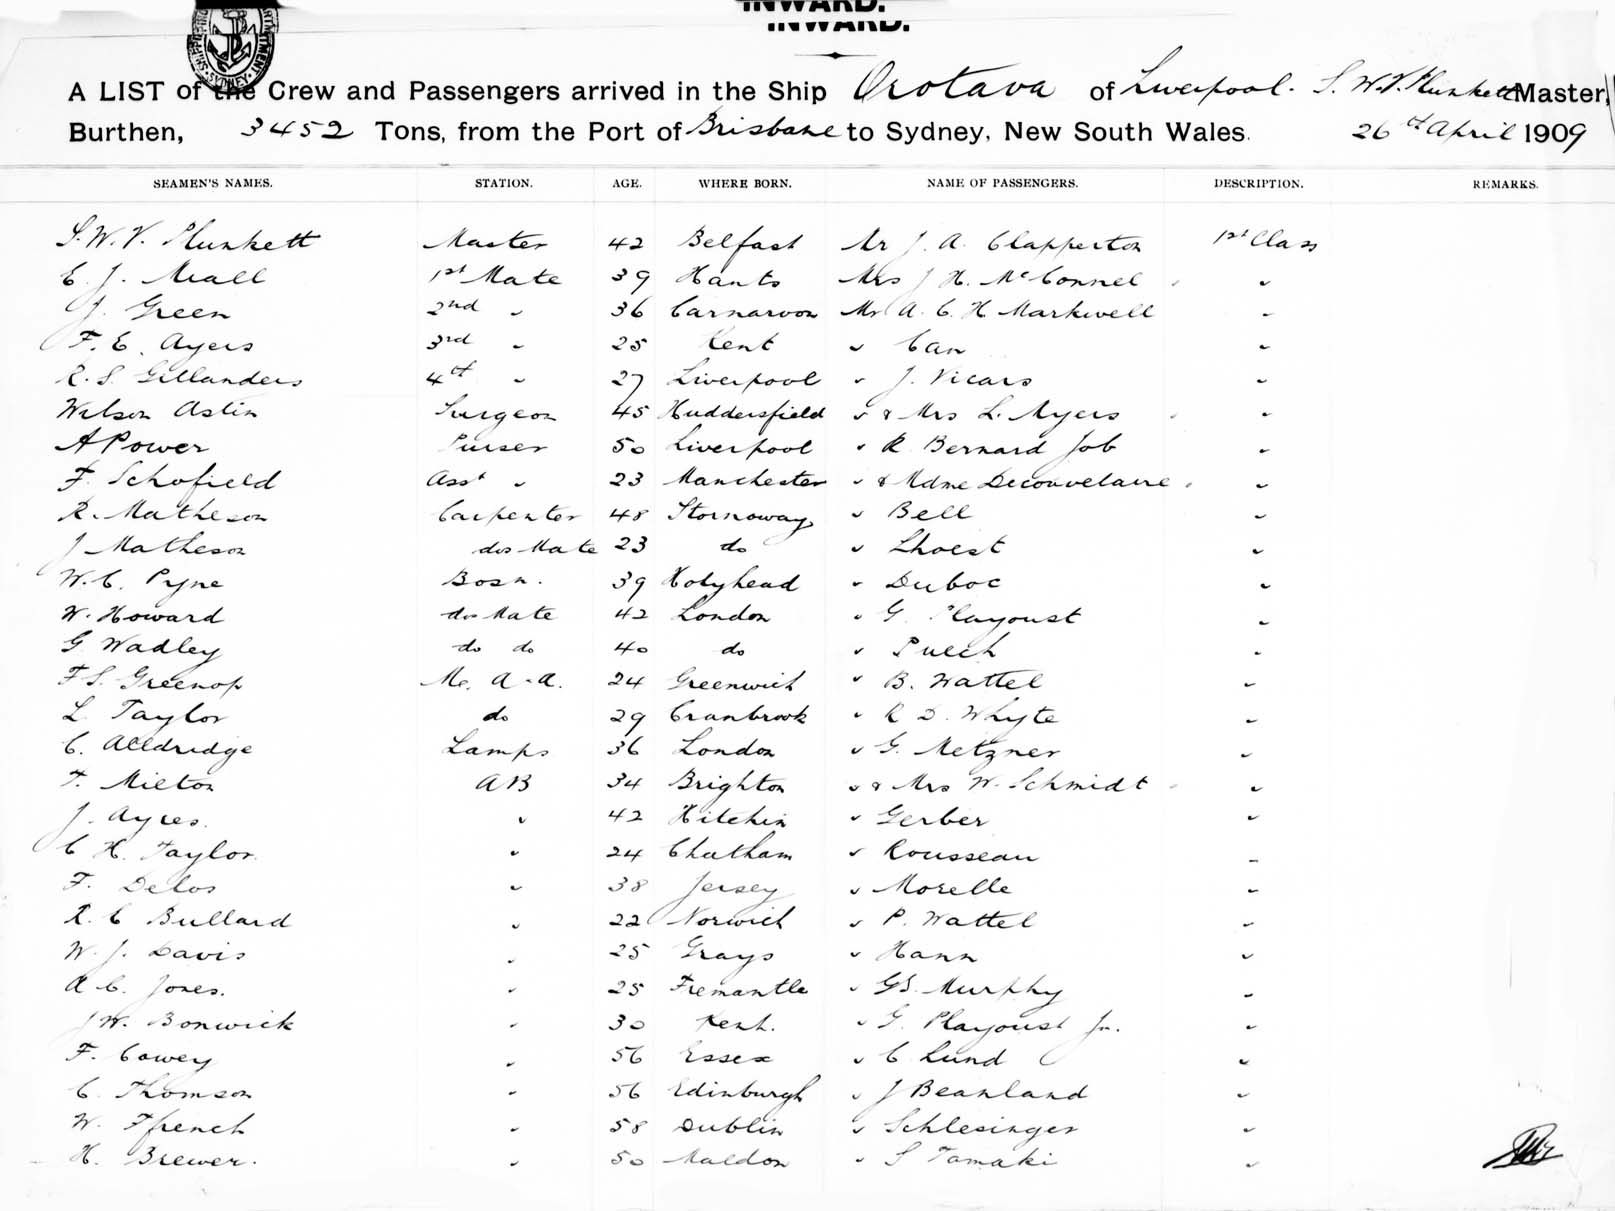 INWARD.
INWARD.
SYDNEY
A LIST of the Crew and Passengers arrived in the Ship Orotava of Liverpool. S. W. V. Plunkett Master,
Burthen, 3452 Tons, from the Port of Brisbane to Sydney, New South Wales. 26th April 1909
SEAMEN'S NAMES. STATION. AGE. WHERE BORN. NAME OF PASSENGERS. DESCRIPTION. REMARKS.
S. W. V. Plunkett Master 42 Belfast Mr J. A. Clapperton 1st Class
E. J. Miall 1st Mate 39 Hants Mrs J H. McConnel "
J. Green 2nd " 36 Carnarvon Mr A. C. H Markwell "
F. E. Ayers 3rd " 25 Kent " Can "
R. S. Gillanders 4th " 27 Liverpool " J. Vicars "
Wilson Astin Surgeon 45 Huddersfield " & Mrs L. Myers "
A Power Purser 50 Liverpool " R. Bernard Job "
F. Schofield Asst " 23 Manchester " & Mdme Decouvelaire "
R. Matheson Carpenter 48 Stornoway " Bell "
J Matheson do Mate 23 do " Lhoest "
W. C. Pyne Bosn. 39 Holyhead " Duboc "
W. Howard do Mate 42 London " G. Playoust "
G Wadley do do 40 do " Puech "
F S. Greenop Mr. A.A. 24 Greenwich " B. Wattel "
L. Taylor do 29 Cranbrook " R D. Whyte "
C. Alldridge Lamps 36 London " G. Metzner "
F. Milton AB 34 Brighton " & Mrs W. Schmidt "
J. Ayres. " 42 Hitchin " Gerber "
C H. Taylor. " 24 Chatham " Rousseau "
F. Delos " 38 Jersey " Morelle "
R. C Bullard " 22 Norwich " P. Wattel "
W. J. Davis " 25 Grays " Hann "
A C. Jones. " 25 Fremantle " G S. Murphy "
J W. Bonwick " 30 Kent. " G. Playoust Jn. "
F. Cowey " 56 Essex " C Lund "
C. Thomson " 56 Edinburgh " J Beanland "
W. Ffrench " 58 Dublin " Schlesinger "
H. Brewer. " 50 Maldon " S Tamaki "